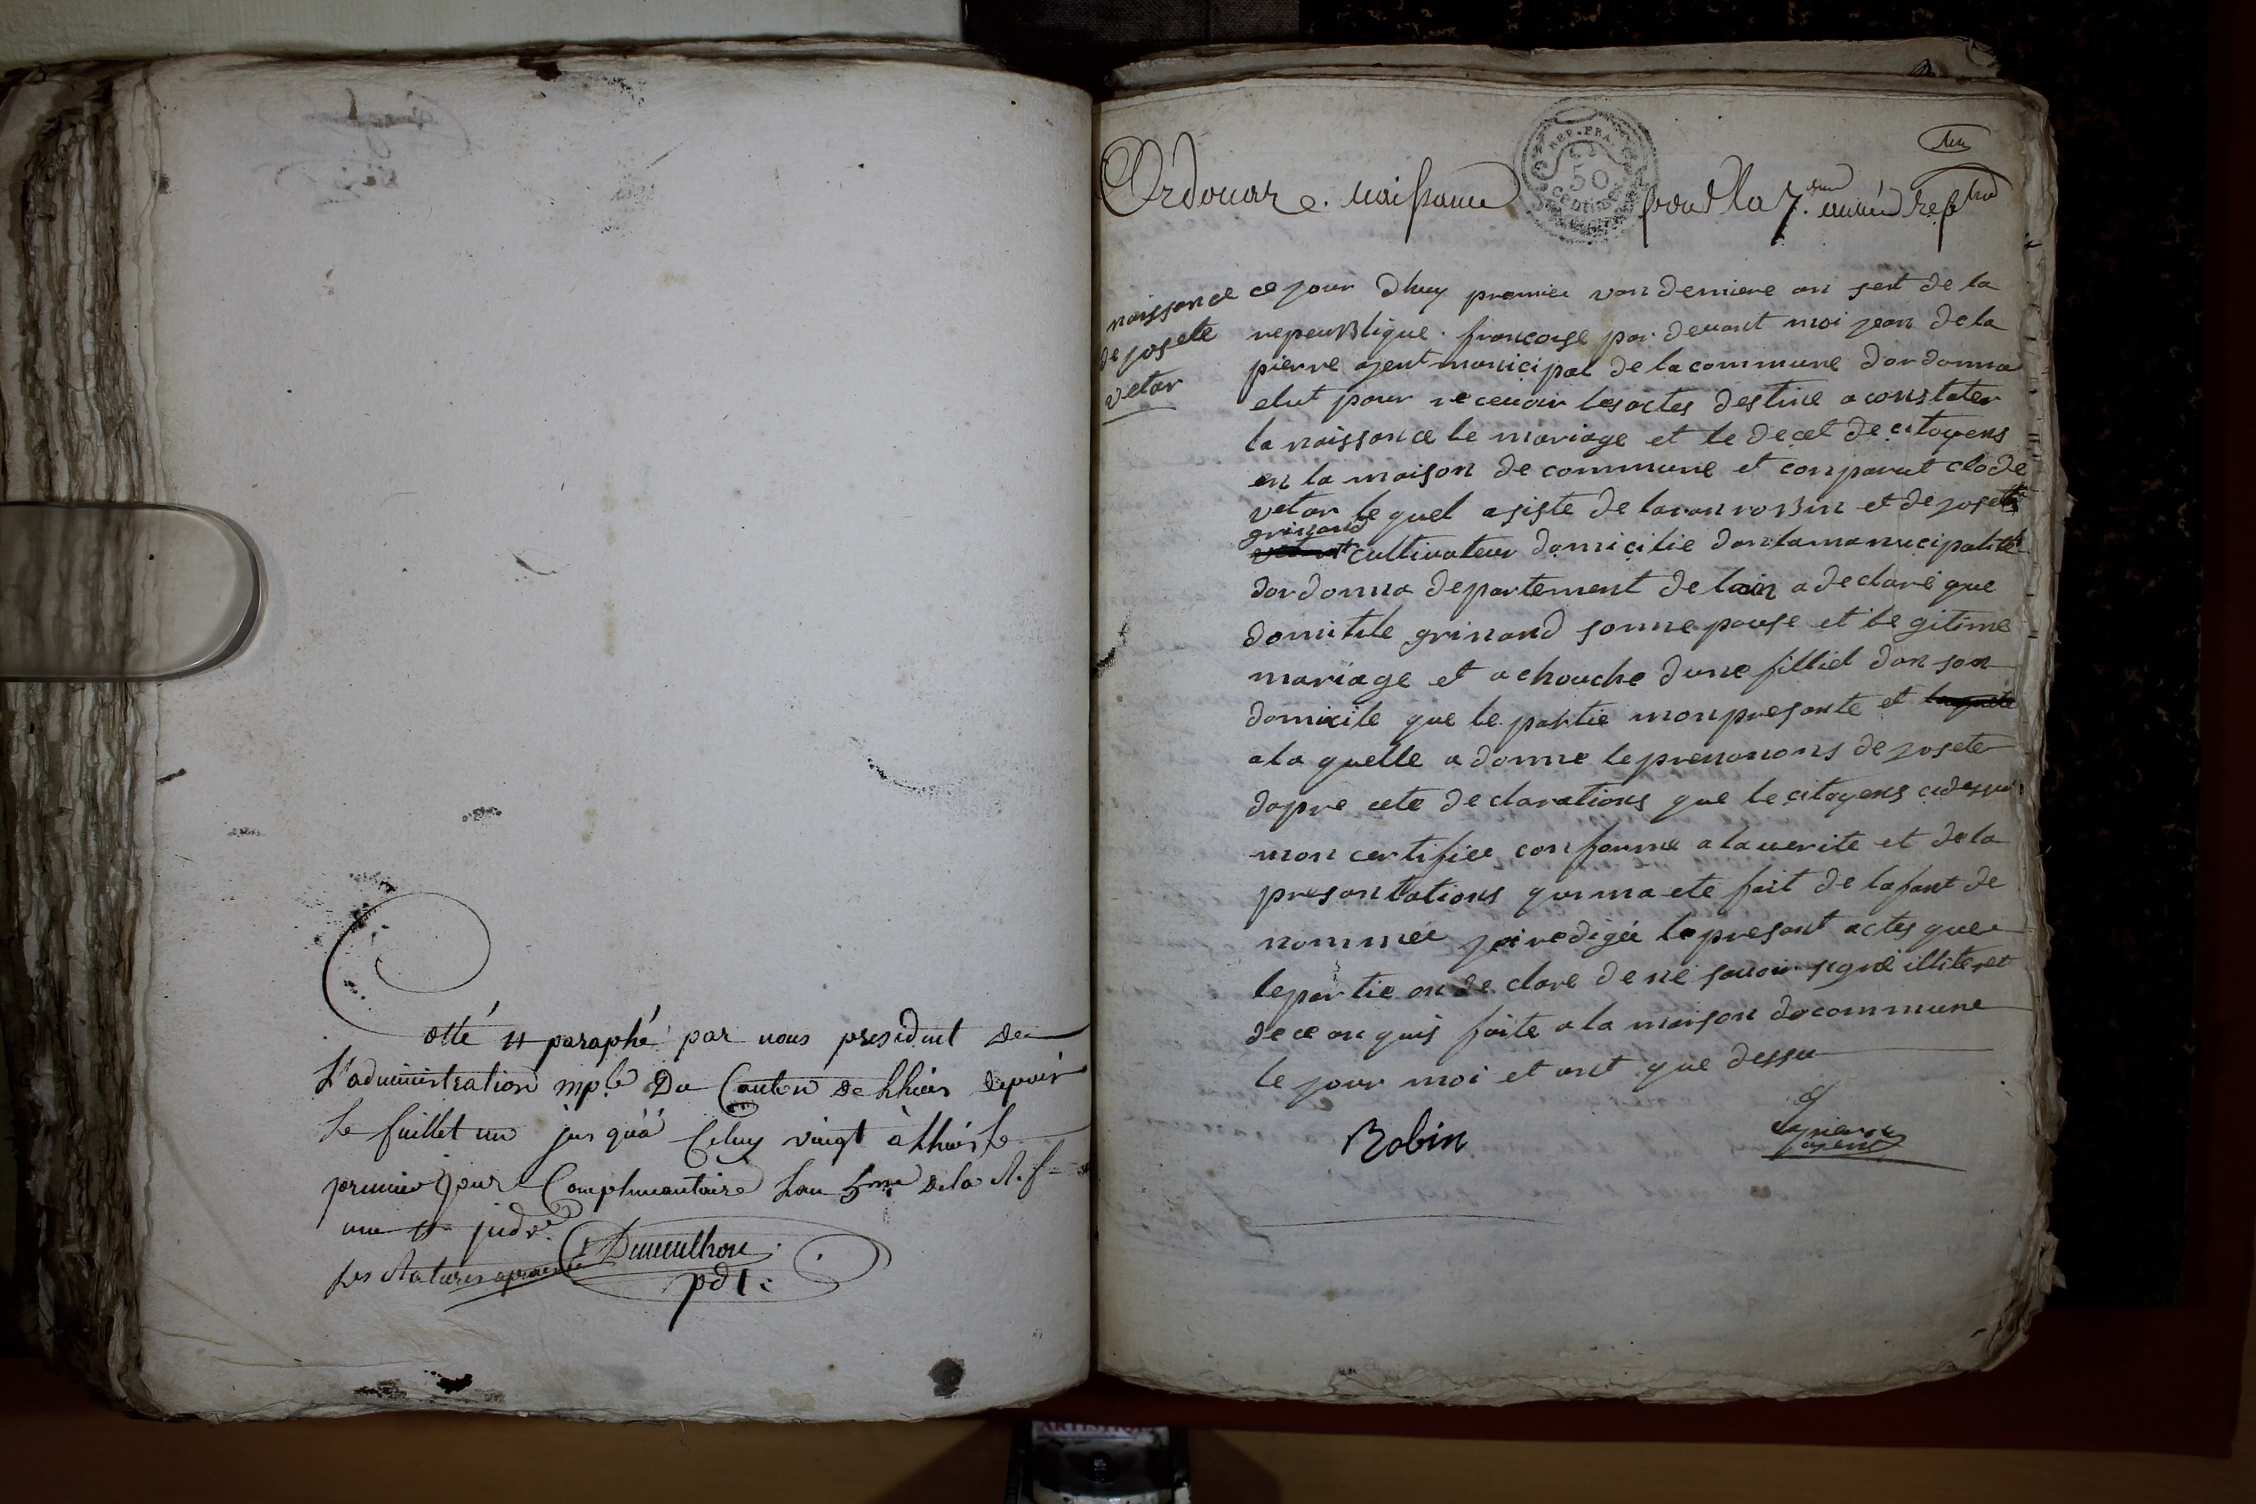 otté et paraphé par nous president de
L'administration mp.le Du Canton de Lhuis depuis
le fuillet un jusqu'à Celuy vingt à Lhuis le
premier jour Complimentaire Lan de la
une et
Ordonaz. naissance pour la 7.eme année
REP. FRA.
50
CENTIMES
naissance
de josete
vetar
ce jour dhuy premier vandemiere an set de la
repeublique francoise par devant moi jean dela
pierre agent municipal de la commune dordonna
elut pour recevoir les actes destine a constater
la naissance le mariage et le decet de citoyens
en la maison de commune et conparut clode
vetar le quel asiste de laran roBin et de josete
grinand
cultivateur domicilie dan la manucipalité
dordonna departement de lain a declaré que
domitile grinand sonnepouse et legitime
mariage et achouche dune filliet dan son
domicile que le partie mon presante et
ala quelle a donne le prenonons de josete
dapre cete declarations que le citoyens cidessu
mon certifiee conforme a la verite et de la
presantations qui ma ete fait de lafant de
nommée jai redigée le presant actes que
le partie on declare de ne savoir signé illiteret
de ce on quis faite a la maison de commune
le jour moi et ant que dessu
Robin
lapierre
agent